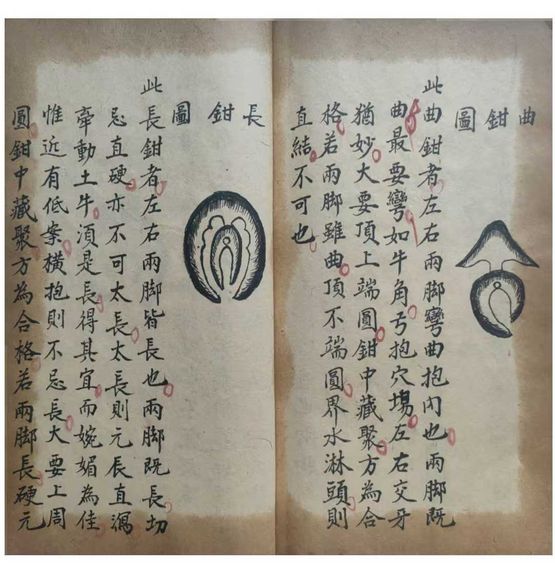 曲鉗圖
此曲鉗者左右兩脚彎曲抱内也兩脚既
曲最要彎如牛角弓抱穴塲左右交牙
猶妙大要頂上端圓鉗中藏聚方為合
格若兩脚雖曲頂不端圓界水淋頭則
直結不可也
長鉗圖
此長鉗者左右兩脚皆長也兩脚既長切
忌直硬亦不可太長太長則元辰直瀉
牽動土牛湏是長得其宜而婉媚為佳
惟近有低案橫抱則不忌長大要上周
圓鉗中藏聚方為合格若兩脚長硬元